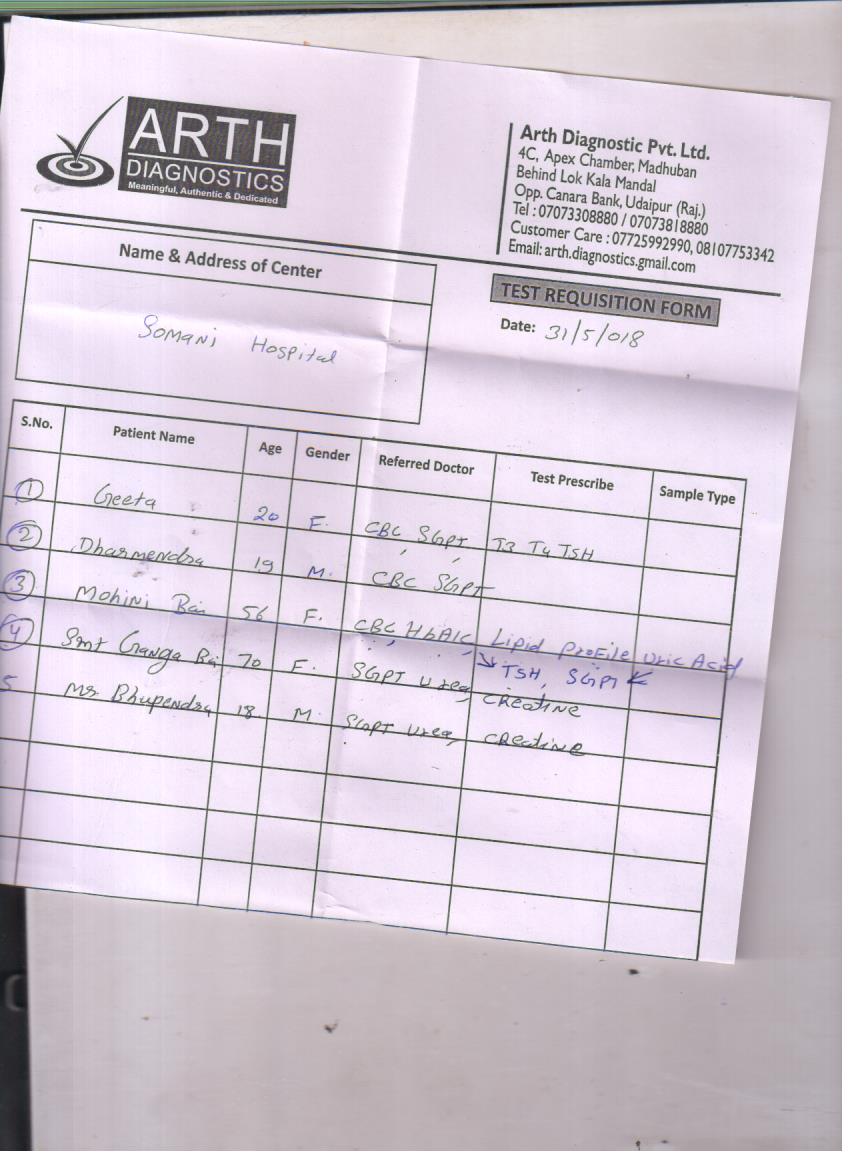 ARTH
DIAGNOSTICS
Meaningful, Authentic & Dedicated
Arth Diagnostic Pvt. Ltd.
4C, Apex Chamber, Madhuban
Behind Lok Kala Mandal
Opp. Canara Bank, Udaipur (Raj.)
Tel : 07073308880 / 07073818880
Customer Care : 07725992990, 08107753342
Email: arth.diagnostics.gmail.com
Name & Address of Center
Somani Hospital
TEST REQUISITION FORM
Date: 31/5/018
S.No. Patient Name Age Gender Referred Doctor Test Prescribe Sample Type
1 Geeta 20 F. CBC, SGPT, T3 T4 TSH
2 Dharmendra 19 M. CBC SGPT
3 Mohini Bai 56 F. CBC, HbA1c, Lipid Profile Uric Acid
TSH, SGPT
4 Smt Ganga Bai 70 F. SGPT Urea, Creatine
5 Mr Bhupendra 18. M. SGPT Urea, Creatine